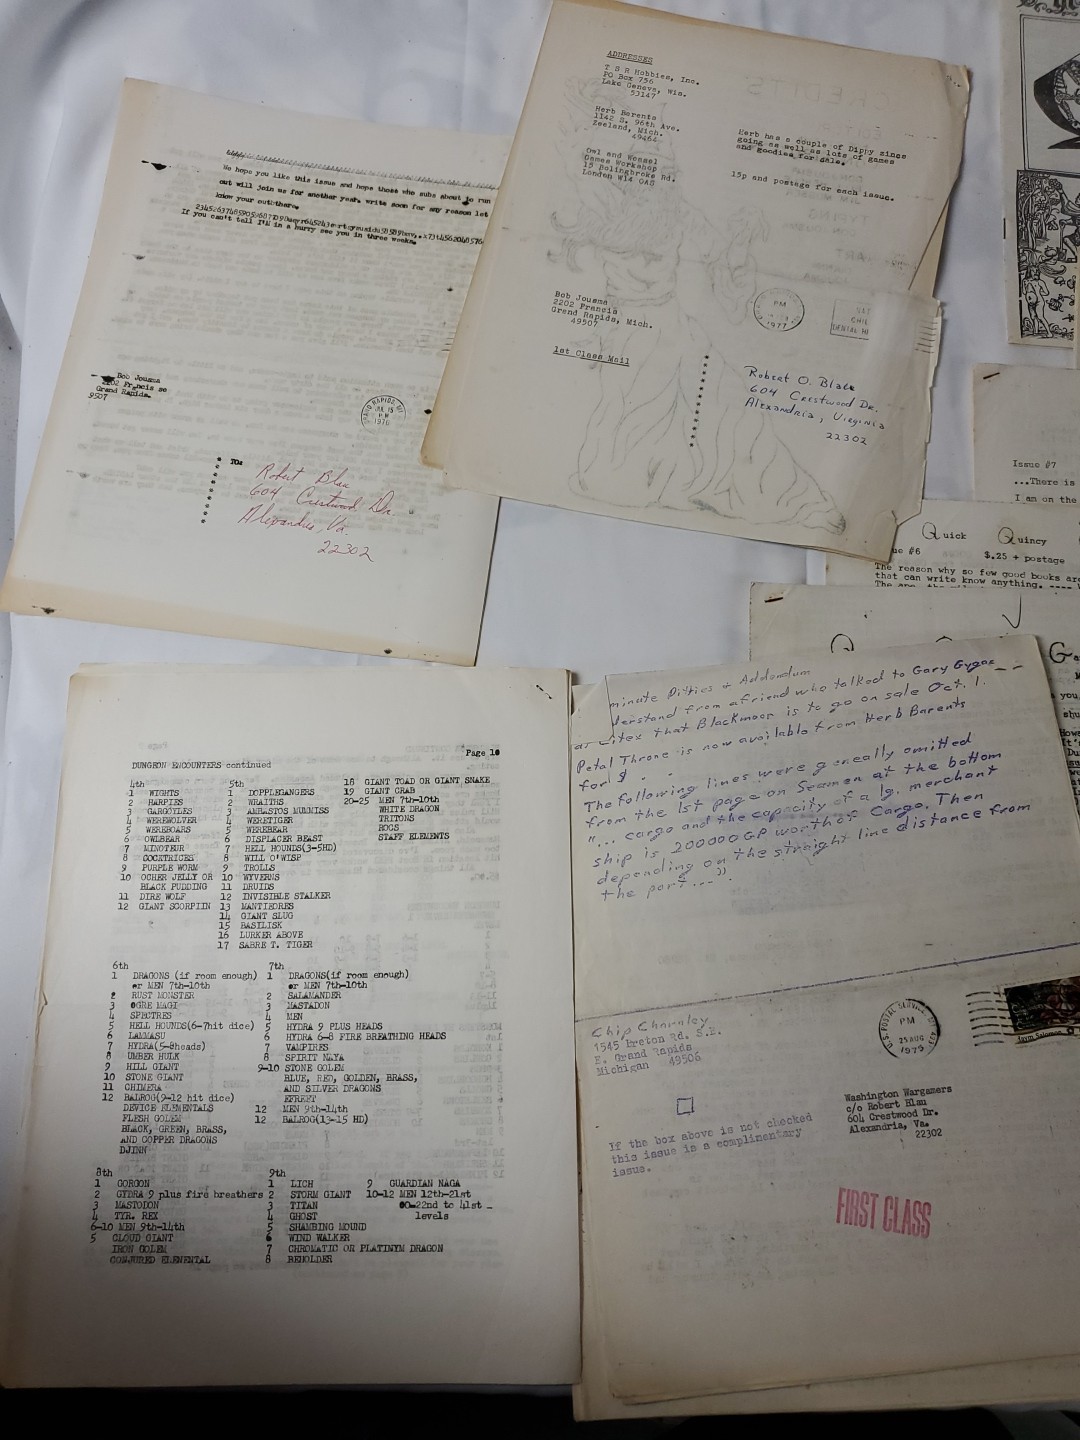 We hope you like this issue and hope those who subs about to run
out will join us for another year. write soon for any reason let
know your out there.
If you can't tell I'M in a hurry see you in three weeks.
Bob Jousma
2202 Francis se
Grand Rapids.
9507
GRAND RAPIDS, MI
PM
1976
TO:
Robert Blau
604 Crestwood Dr.
Alexandria, Va.
22302
ADDRESSES
T S R Hobbies, Inc.
PO Box 756
Lake Geneva, Wis.
53147
Herb Barents
1142 S. 96th Ave.
Zeeland, Mich.
49464
Herb has a couple of Dippy since
going as well as lots of games
and goodies for sale.
Owl and Weasel
Games Workshop
15 Bolingbroke Rd.
London W14 0AS
15p and postage for each issue.
CREDITS
Bob Jousma
2202 Francis
Grand Rapids, Mich.
49507
1st Class Mail
PM
1977
Robert O. Blau
604 Crestwood Dr.
Alexandria, Virginia
22302
Issue #7
...There is
I am on the
Quick Quincy
ue #6 $.25 + postage
The reason why so few good books are
that can write know anything.
Page 10
DUNGEON ENCOUNTERS continued
4th
1 WIGHTS
2 HARPIES
3 GARGOYLES
4 WEREWOLVER
5 WEREBOARS
6 OWLBEAR
7 MINOTEUR
8 COCKTRICES
9 PURPLE WORM
10 OCHER JELLY OR
BLACK PUDDING
11 DIRE WOLF
12 GIANT SCORPIIN
5th
1 DOPPLEGANGERS
2 WRAITHS
3 AMBASTOS MUMMISS
4 WERETIGER
5 WEREBEAR
6 DISPLACER BEAST
7 HELL HOUNDS(3-5HD)
8 WILL O'WISP
9 TROLLS
10 WYVERNS
11 DRUIDS
12 INVISIBLE STALKER
13 MANTICRES
14 GIANT SLUG
15 BASILISK
16 LURKER ABOVE
17 SABRE T. TIGER
18 GIANT TOAD OR GIANT SNAKE
19 GIANT CRAB
20-25 MEN 7th-10th
WHITE DRAGON
TRITONS
ROCS
STAFF ELEMENTS
6th
1 DRAGONS (if room enough)
or MEN 7th-10th
2 RUST MONSTER
3 OGRE MAGI
4 SPECTRES
5 HELL HOUNDS(6-7hit dice)
6 LAMMASU
7 HYDRA(5-8heads)
8 UMBER HULK
9 HILL GIANT
10 STONE GIANT
11 CHIMERA
12 BALROG(9-12 hit dice)
DEVICE ELEMENTALS
FLESH GOLEM
BLACK, GREEN, BRASS,
AND COPPER DRAGONS
DJINN
7th
1 DRAGONS(if room enough)
or MEN 7th-10th
2 SALAMANDER
3 MASTADON
4 MEN
5 HYDRA 9 PLUS HEADS
6 HYDRA 6-8 FIRE BREATHING HEADS
7 VAMPIRES
8 SPIRIT NAYA
9-10 STONE GOLEM
BLUE, RED, GOLDEN, BRASS,
AND SILVER DRAGONS
EFREET
12 MEN 9th-14th
12 BALROG(13-15 HD)
8th
1 GORGON
2 GYDRA 9 plus fire breathers
3 MASTODON
4 TYR. REX
6-10 MEN 9th-14th
5 CLOUD GIANT
IRON GOLEM
CONJURED ELENENTAL
9th
1 LICH
2 STORM GIANT
3 TITAN
4 GHOST
5 SHAMBING MOUND
6 WIND WALKER
7 CHROMATIC OR PLATINYM DRAGON
8 BEHOLDER
9 GUARDIAN NAGA
10-12 MEN 12th-21st
00-22nd to 41st
levels
minute Ditties + Addendum
derstand from a friend who talked to Gary Gygax
at Citex that Blackmoor is to go on sale Oct. 1.
Petal Throne is now available from Herb Barents
for $
The following lines were generally omitted
from the 1st page on Seamen at the bottom
"... cargo and the capacity of a lg. merchant
ship is 200000 GP worth of Cargo. Then
depending on the straight line distance from
the port...".
Chip Charnley
1545 Breton Rd. S.E.
E. Grand Rapids
Michigan 49506
U.S. POSTAL SERVICE, MI
PM
25 AUG
1975
Haym Salomon
Washington Wargamers
c/o Robert Blau
604 Crestwood Dr.
Alexandria, Va.
22302
If the box above is not checked
this issue is a complimentary
issue.
FIRST CLASS